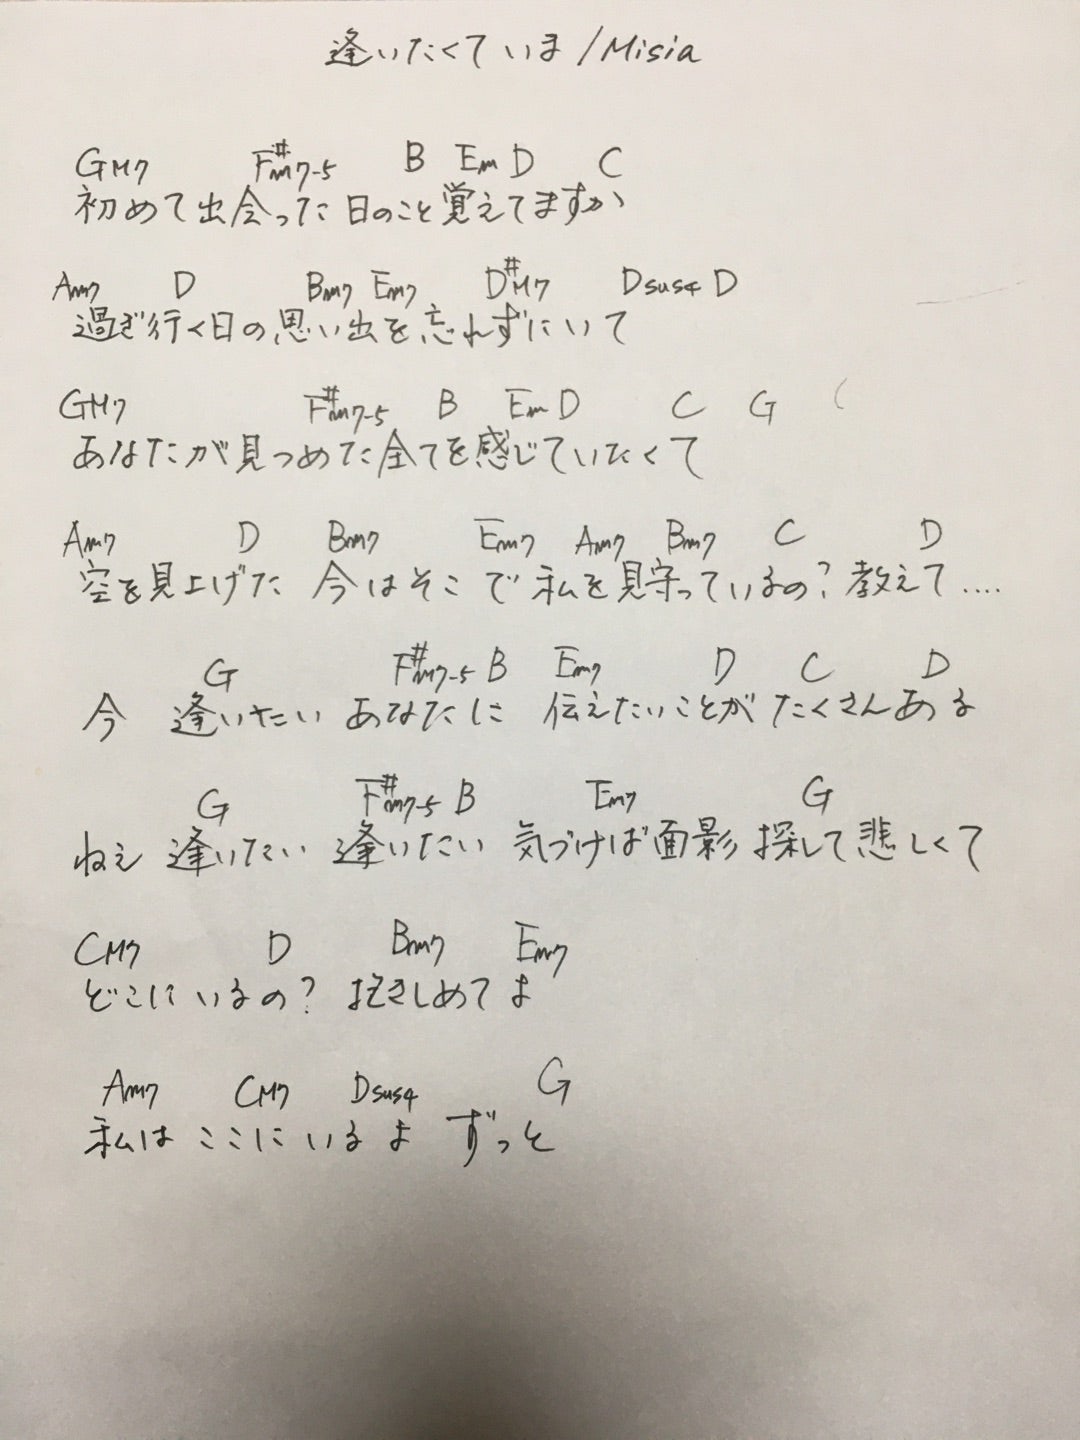 逢いたくていま/Misia
GM7 F#m7-5 B Em D C
初めて出会った日のこと覚えてますか
Am7 D Bm7 Em7 D#M7 Dsus4 D
過ぎ行く日の思い出を忘れずにいて
GM7 F#m7-5 B Em D C G
あなたが見つめた全てを感じていたくて
Am7 D Bm7 Em7 Am7 Bm7 C D
空を見上げた 今はそこで 私を見守っているの?教えて....
G F#m7-5 B Em7 D C D
今 逢いたい あなたに 伝えたいことが たくさんある
G F#m7-5 B Em7 G
ねえ 逢いたい 逢いたい 気づけば面影 探して悲しくて
CM7 D Bm7 Em7
どこにいるの? 抱きしめてよ
Am7 CM7 Dsus4 G
私は ここに いるよ ずっと